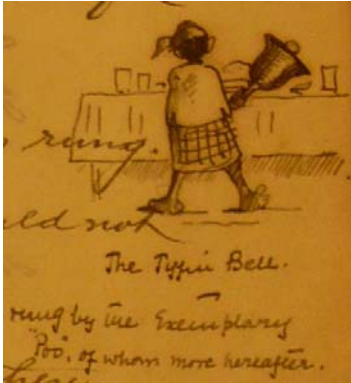 rung.
ld not
The Tiffin Bell.
rung by the Exemplary
"Poo", of whom more hereafter.